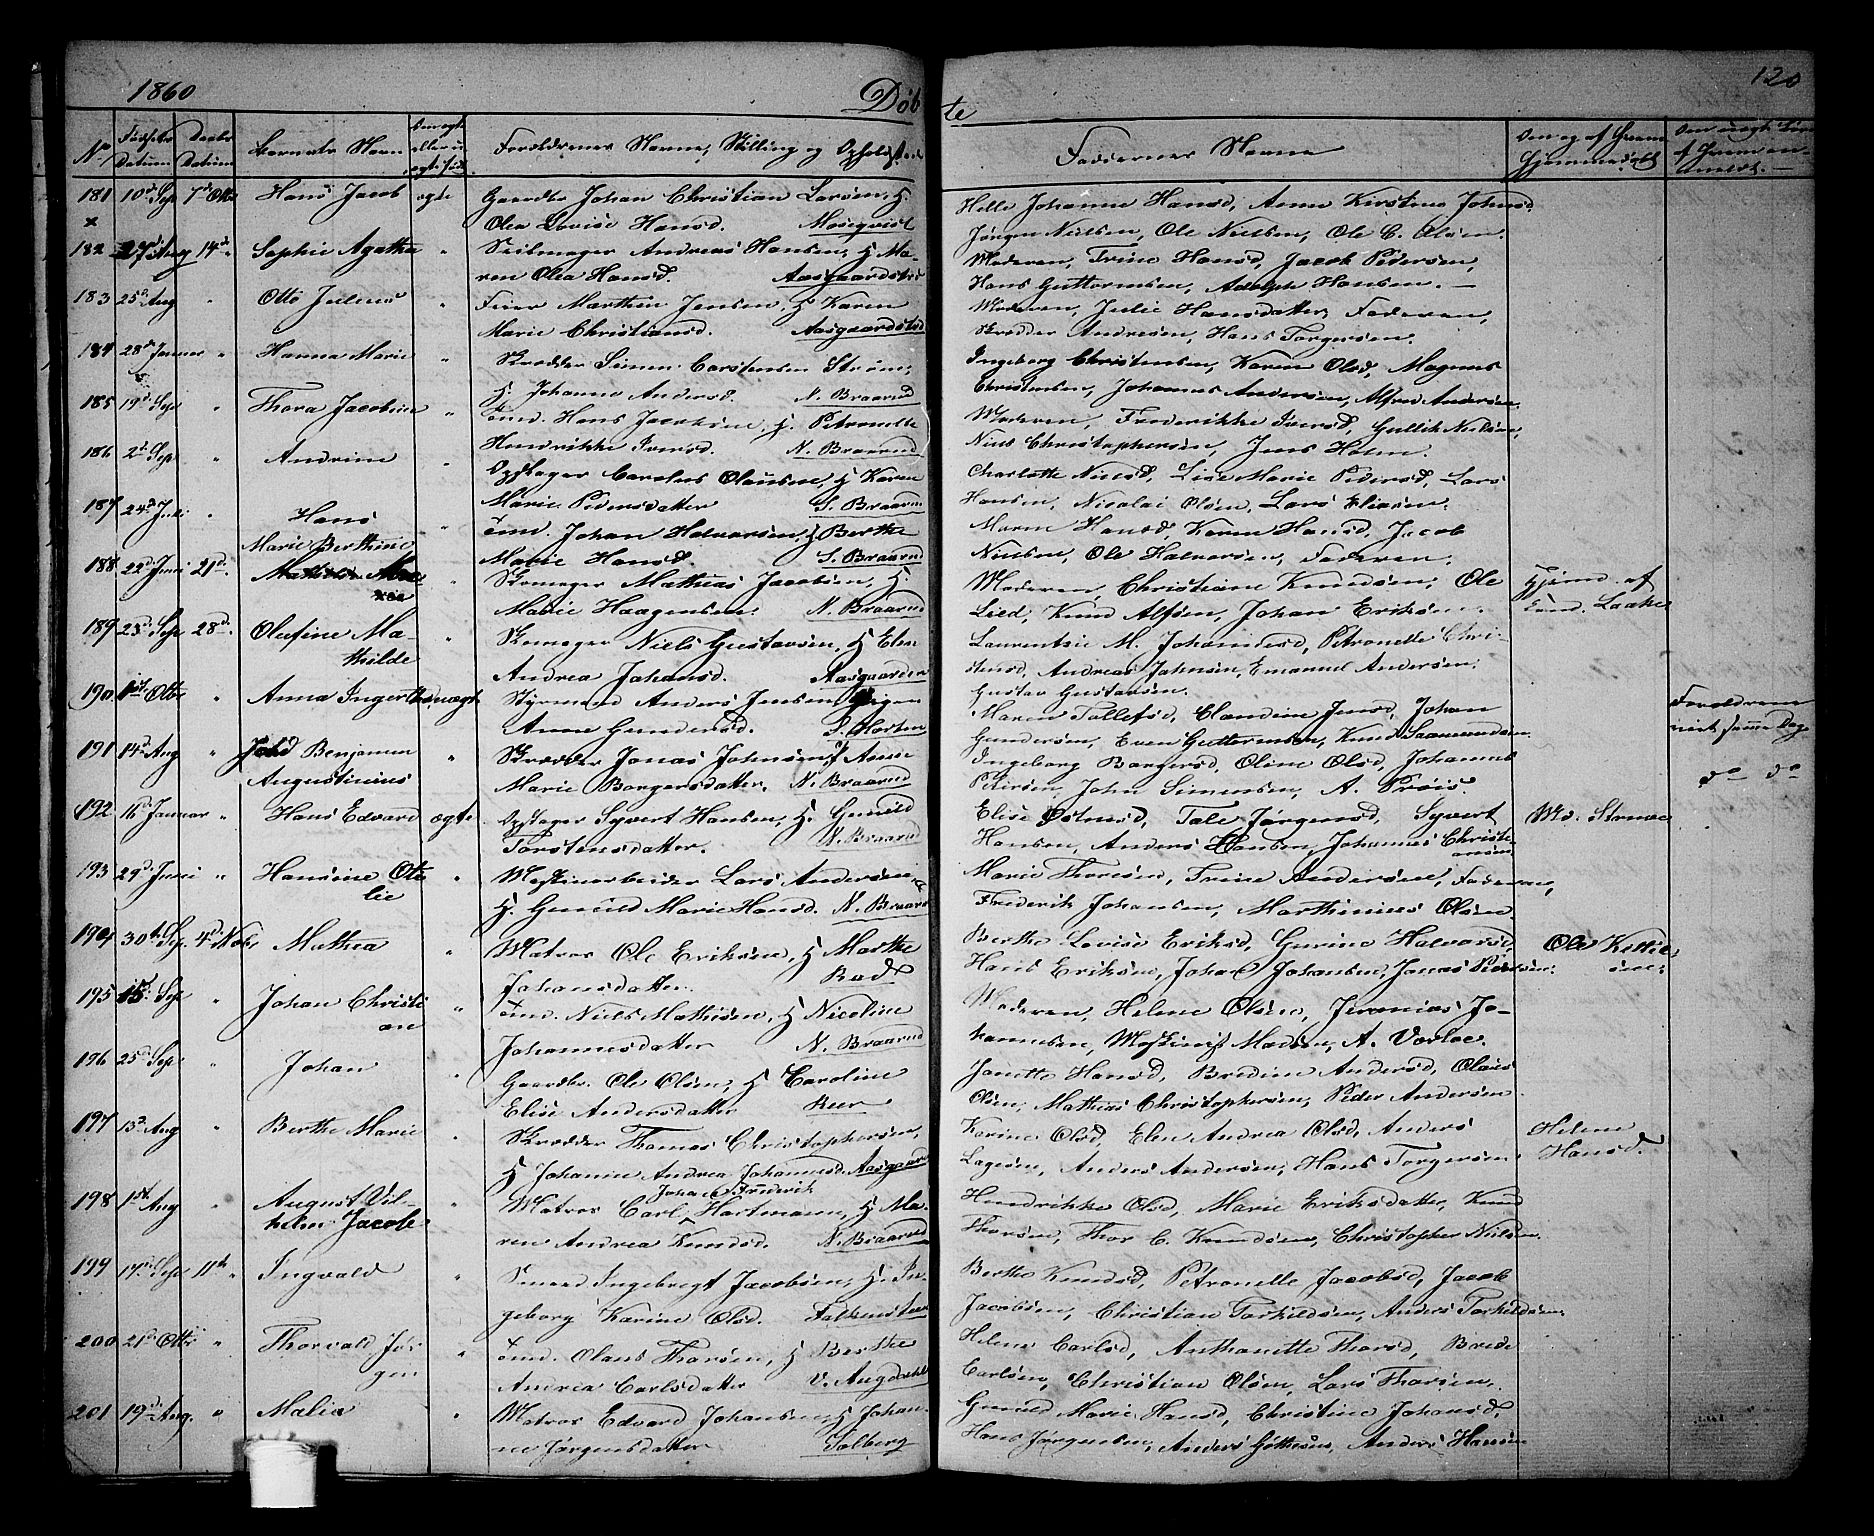 1860
Døb
te
120
No
Fødsels Datum
Daabs Datum
Barnets Navn
Om ægte eller uægte født
Forældrenes Navne, Stilling og Opholdssted
Faddernes Navne
181 10d Sep 7d Otbr Hans Jacob ægte Gaardbr Johan Christian Larsen, H.
Olea Lovise Hansd. Moseqvist
Helle Johanne Hansd, Anne Kirstine Johnsd
Jørgen Nielsen, Ole Nielsen, Ole C. Olsen.
182 27d Aug 14d " Sophie Agathe " Seilmager Andreas Hansen, H Ma-
ren Olea Hansd. Aasgaardstrd
Moderen, Trine Hansd, Jacob Pedersen,
Hans Guttormsen, Adolph Hansen. —
183 25d Aug " Otto Julius " Feier Marthin Jensen, H Karen
Marie Christiansd. Aasgaardstrd
Moderen, Julie Hansdatter, Faderen,
Skrædder Andresen, Hans Torgersen.
184 28d Januar " Hanna Marie " Skrædder Simen Carstensen Strøm,
H. Johanne Andersd. N. Braarud
Ingeborg Christensen, Karen Olsd, Magnus
Christensen, Johannes Andersen, Alfred Andersen.
185 19d Sep " Thora Jacobine " Tømd. Hans Jacobsen, H. Petronelle
Hendrikke Iversd. N. Braarud
Moderen, Frederikke Iversd, Gullik Nielsen,
Niels Christophersen, Jens Holm.
186 2d Sep " Andrine " Opstager Carolus Olausen, H Karen
Marie Pedersdatter S. Braarud
Charlotte Nielsd, Lise Marie Pedersd, Lars
Hansen, Nicolai Olsen, Lars Eliasen.
187 24d Juli " Hans " Tømd. Johan Halvorsen, H Berthe
Marie Hansd. S. Braarud
Maren Hansd, Karen Hansd, Jacob
Nielsen, Ole Halvorsen, Faderen.
188 22d Juni 21d. Marie Berthine
Mathilde
" Skomager Mathias Jacobsen, H.
Marie Haagensen. N. Braarud
Moderen, Christiane Knudsen, Ole
Lied, Knud Alfsen, Johan Eriksen.
Hjemd. af
Laake
189 25d Sep 28d. Olufine Ma-
thilde " Skomager Niels Gustavsen, H Elen
Andrea Johansd. Aasgaarden
Laurentse M. Johannesd, Petronelle Chri-
stensd, Andreas Johnsen, Emanuel Andersen,
Gustav Gustavsen.
190 1st Otbr " Anna Ingertha uægte Styrmand Anders Jensen, Pigen
Anne Gundersd. S. Horten
Maren Tollefsd, Claudine Jensd, Johan
Gundersen, Even Guttormsen, Knud Saamundsen
Forældrene
viet samme Dag
191 14d Aug " Benjamin
Augustinius " Skrædder Jonas Johnsen, H Anne
Marie Borgersdatter. N. Braarud
Ingeborg Borgersd, Oline Olsd, Johannes
Petersen, John Simensen, A. Prøis.
do do
192 16d Januar " Hans Edvard ægte Opstager Syvert Hansen, H. Gunild
Torstensdatter. N. Braarud
Elise Østensd, Tale Jørgensd, Syvert
Hansen, Anders Hansen, Johannes Christi-
ansen
Md. Strøm
193 29d Juni " Hansine Ote-
lie " Maskinarbeider Lars Andersen,
H. Gunild Marie Hansd. N. Braarud
Marie Thoresen, Trine Andersen, Faderen,
Frederik Johansen, Marthinius Olsen.
194 30te Sep. 4d Novbr Mathea " Matros Ole Eriksen, H Marthe
Johansdatter. Rød
Berthe Lovise Eriksd, Gurine Halvorsd,
Hans Eriksen, Johan Johansen, Jonas Pedersen.
Ole Kittil-
sen.
195 15d. Sep " Johan Christi
an " Tømd. Niels Mathisen, H Nicoline
Johannesdatter N. Braarud
Moderen, Helene Olsen, Jeremias Jo-
hannesen, Maskinist Madsen, A. Vorloe.
196 25d Sep " Johan " Gaardbr. Ole Olsen, H Caroline
Elise Andersdatter Reer
Janette Hansd, Bredine Andersd, Olaus
Olsen, Mathias Christophersen, Peder Andersen
197 13d Aug " Berthe Marie " Skrædder Thomas Christophersen,
H Johanne Andrea Johannesd. Aasgaard
Karine Olsd, Elen Andrea Olsd, Anders
Lagesen, Anders Andersen, Hans Torgersen.
Helene
Hansd.
198 1st Aug " August Vil-
helm Jacob " Johan Frederik
Matros Carl Hartmann, H Ma-
ren Andrea Knudsd. N. Braarud
Hendrikke Olsd, Marie Eriksdatter, Knud
Thorsen, Thor C. Knudsen, Christopher Nielsen.
199 17d. Sep 11th " Ingvald " Smed Ingebregt Jacobsen, H. In-
geborg Karine Olsd. Falkensteen
Berthe Knudsd, Petronelle Jacobsd, Jacob
Jacobsen, Christian Torkildsen, Anders Torkildsen.
200 21d. Otbr " Thorvald Jør-
gen " Tømd. Olaus Thorsen, H Berthe
Andrea Carlsdatter V. Augdahl
Helene Carlsd, Anthonette Thorsd, Brede
Carlsen, Christian Olsen, Lars Thorsen.
201 19d. Aug. " Malia " Matros Edvard Johansen, H Johan-
ne Jørgensdatter Solberg
Gunild Marie Hansd, Christine Johansd,
Hans Jørgensen, Anders Gøthesen, Anders Hansen